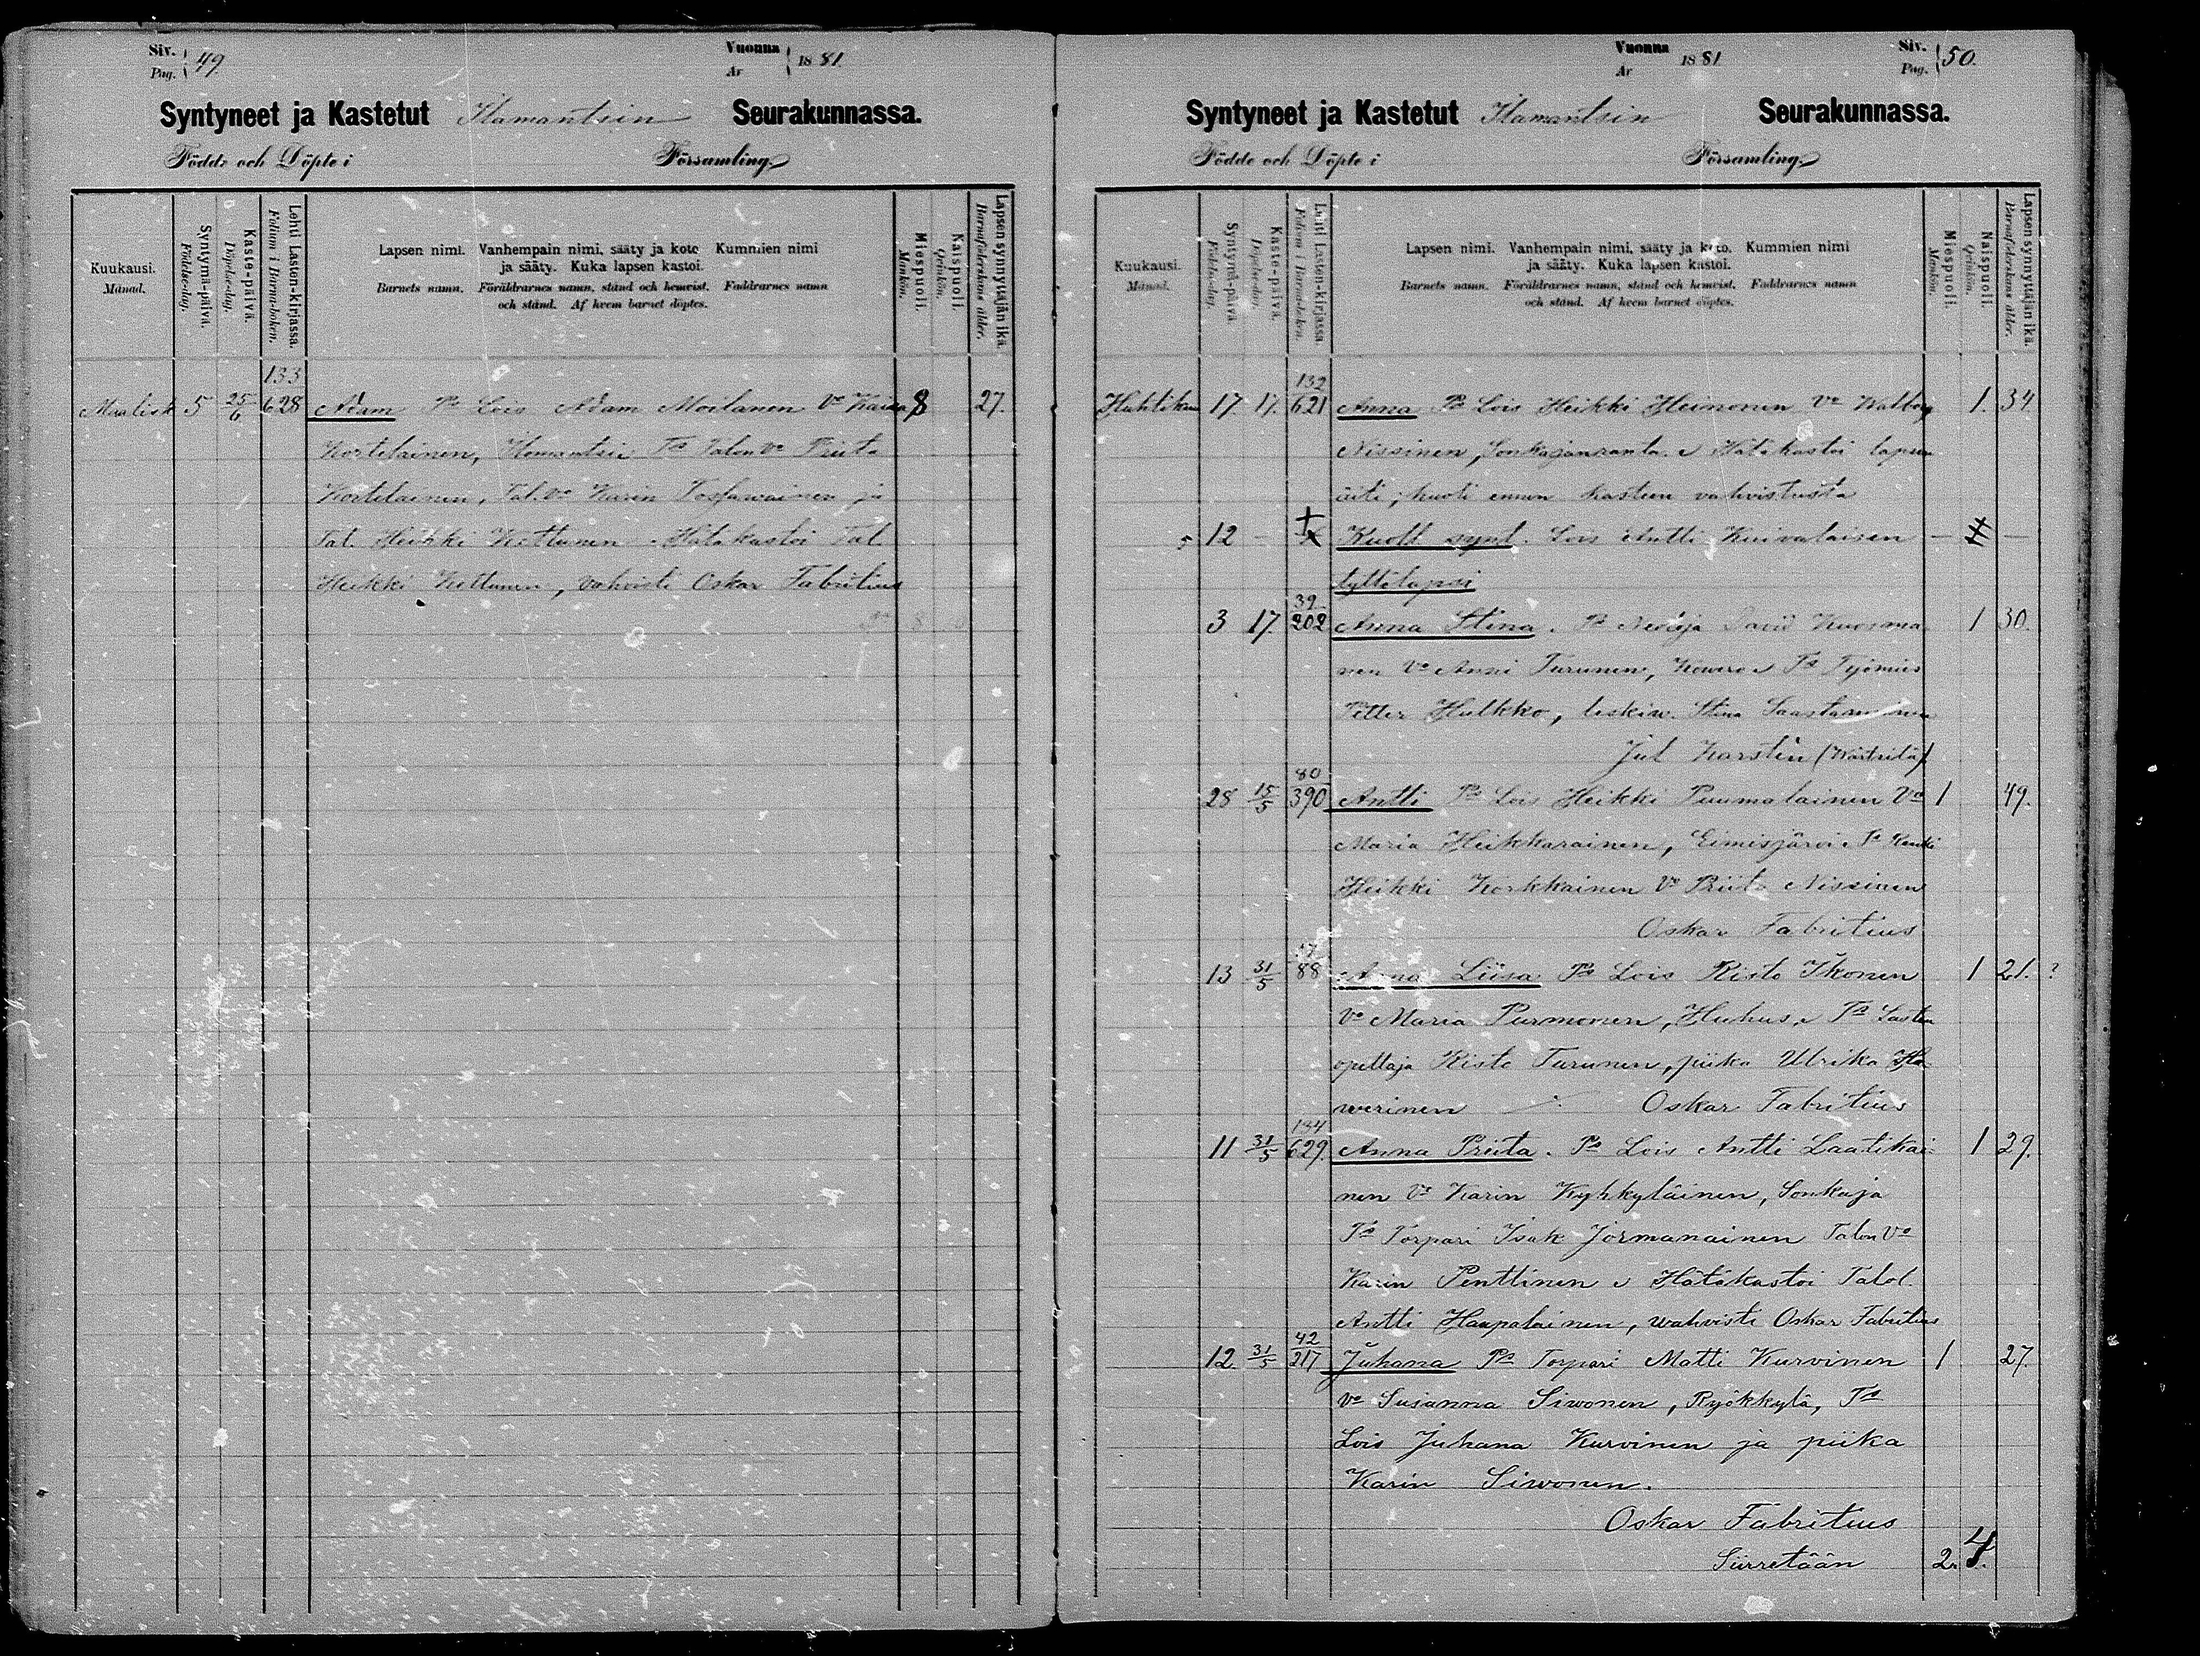 Siv. Pag. 49.
Vuonna År 1881.
Syntyneet ja Kastetut Ilamantsin Seurakunnassa.
Födde och Döpte i Församling.
Kuukausi. Månad.
Syntymä-päivä. Födelse-dag.
Kaste-päivä. Döpelse-dag.
Lehti Lasten-kirjassa. Folium i Barna-boken.
Lapsen nimi. Vanhempain nimi, sääty ja koto Kummien nimi
ja sääty. Kuka lapsen kastoi.
Barnets namn. Föräldrarnes namn, stånd och hemvist. Faddrarnes namn
och stånd. Af hvem barnet döptes.
Miespuoli. Mankön.
Naispuoli. Qvinkön.
Lapsen synnyttäjän ikä. Barnaföderskans ålder.
133
Maalisk 5 25/6 628 Adam Ps Lois Adam Moilanen Vo Kaisa 8 27.
Kortelainen, Ilomantsi Ts Talon Vo Priita
Kortelainen, Tal. Vo Karin ja
Tal. Heikki Kettunen. Hätäkastoi Tal.
Heikki Kettunen, vahvisti Oskar Fabritius
Vuonna År 1881
Siv. Pag. 50.
Syntyneet ja Kastetut Ilamantsin Seurakunnassa.
Födde och Döpte i Församling.
Kuukausi. Månad.
Syntymä-päivä. Födelse-dag.
Kaste-päivä. Döpelse-dag.
Lehti Lasten-kirjassa. Folium i Barnaboken.
Lapsen nimi. Vanhempain nimi, sääty ja koto. Kummien nimi
ja sääty. Kuka lapsen kastoi.
Barnets namn. Föräldrarnes namn, stånd och hemvist. Faddrarnes namn
och stånd. Af hvem barnet döptes.
Miespuoli. Mankön.
Naispuoli. Qvinkön.
Lapsen synnyttäjän ikä. Barnaföderskans ålder.
132
Huhtikuu 17 17. 621 Anna Ps Lois Heikki Heinonen Vo Walborg 1. 34.
Nissinen, Sonkajanranta. Hätäkastoi lapsen
äiti; kuoli ennen kasteen vahvistusta
12 — Kuoll. synt. Lois Antti Kuivalaisen — —
tyttölapsi
39
3 17. 202 Anna Stina. Ps David Kuosma 1 30.
nen Vo Anni Turunen, Kowero Ts Työmies
Petter Hulkko, leskiw. Stina Saastamoinen
Jul Karstén (Wärtsilä)
80
28 15/5 390 Antti Ps Lois Heikki Puumalainen Vo 1 49.
Maria Heikkarainen, Eimisjärvi. Ts Renki
Heikki Korkkainen Vo Priita Nissinen
Oskar Fabritius
13 31/5 88 Anna Liisa Ps Lois Risto Ikonen 1 21. ?
Vo Maria Purmonen, Huhus. Ts Lasten
opettaja Risto Turunen, piika Ulrika Ha
werinen Oskar Fabritius
134
11 31/5 629. Anna Priita. Ps Lois Antti Laatikai 1 29.
nen Vo Karin Kyhkyläinen, Sonkaja
Ts Torpari Isak Jormanainen Talon Vo
Karin Penttinen Hätäkastoi Talol.
Antti Haapalainen, wahvisti Oskar Fabritius
42
12 31/5 217 Juhana Ps Torpari Matti Kurvinen 1 27.
Vo Susanna Siwonen, Ryökkylä, Ts
Lois Juhana Kurvinen ja piika
Karin Siwonen.
Oskar Fabritius
Siirretään 2. 4.